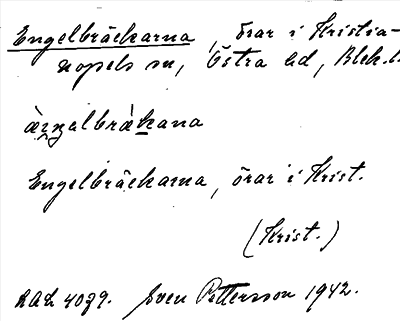 Engelbräckarna, örar i Kristia-
nopels sn, Östra hd, Blek. l.
àŋnalbrǻkana
Engelbräckarna, örar i Krist.
(Krist.)
RAÄ 4079. Sven Pettersson 1942.